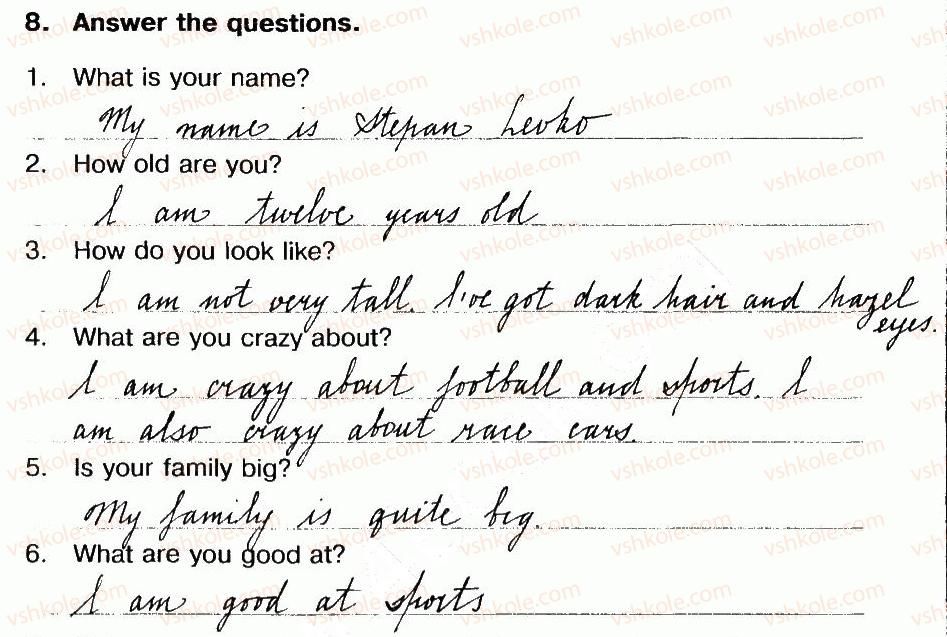 8. Answer the questions.
1. What is your name?
My name is Stepan Levko
2. How old are you?
I am twelve years old
3. How do you look like?
I am not very tall. I've got dark hair and hazel
eyes.
4. What are you crazy about?
I am crazy about football and sports. I
am also crazy about race cars.
5. Is your family big?
My family is quite big.
6. What are you good at?
I am good at sports
vshkole.com